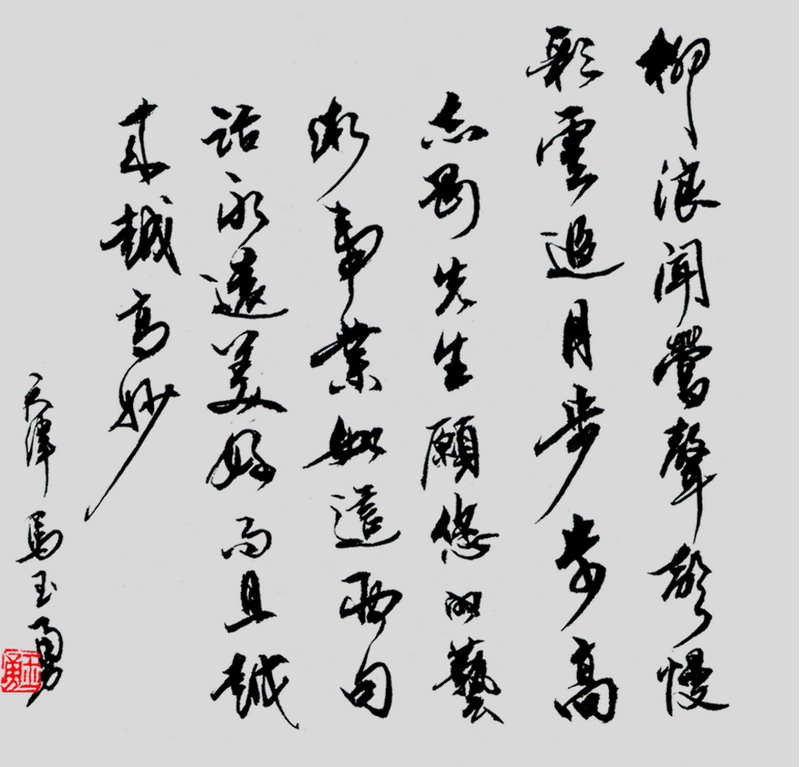 柳浪聞鶯聲聲慢
彩雲追月步步高
志先生願您的藝
術事業如這兩句
話永遠美好而且越
来越高妙
天津馬玉勇